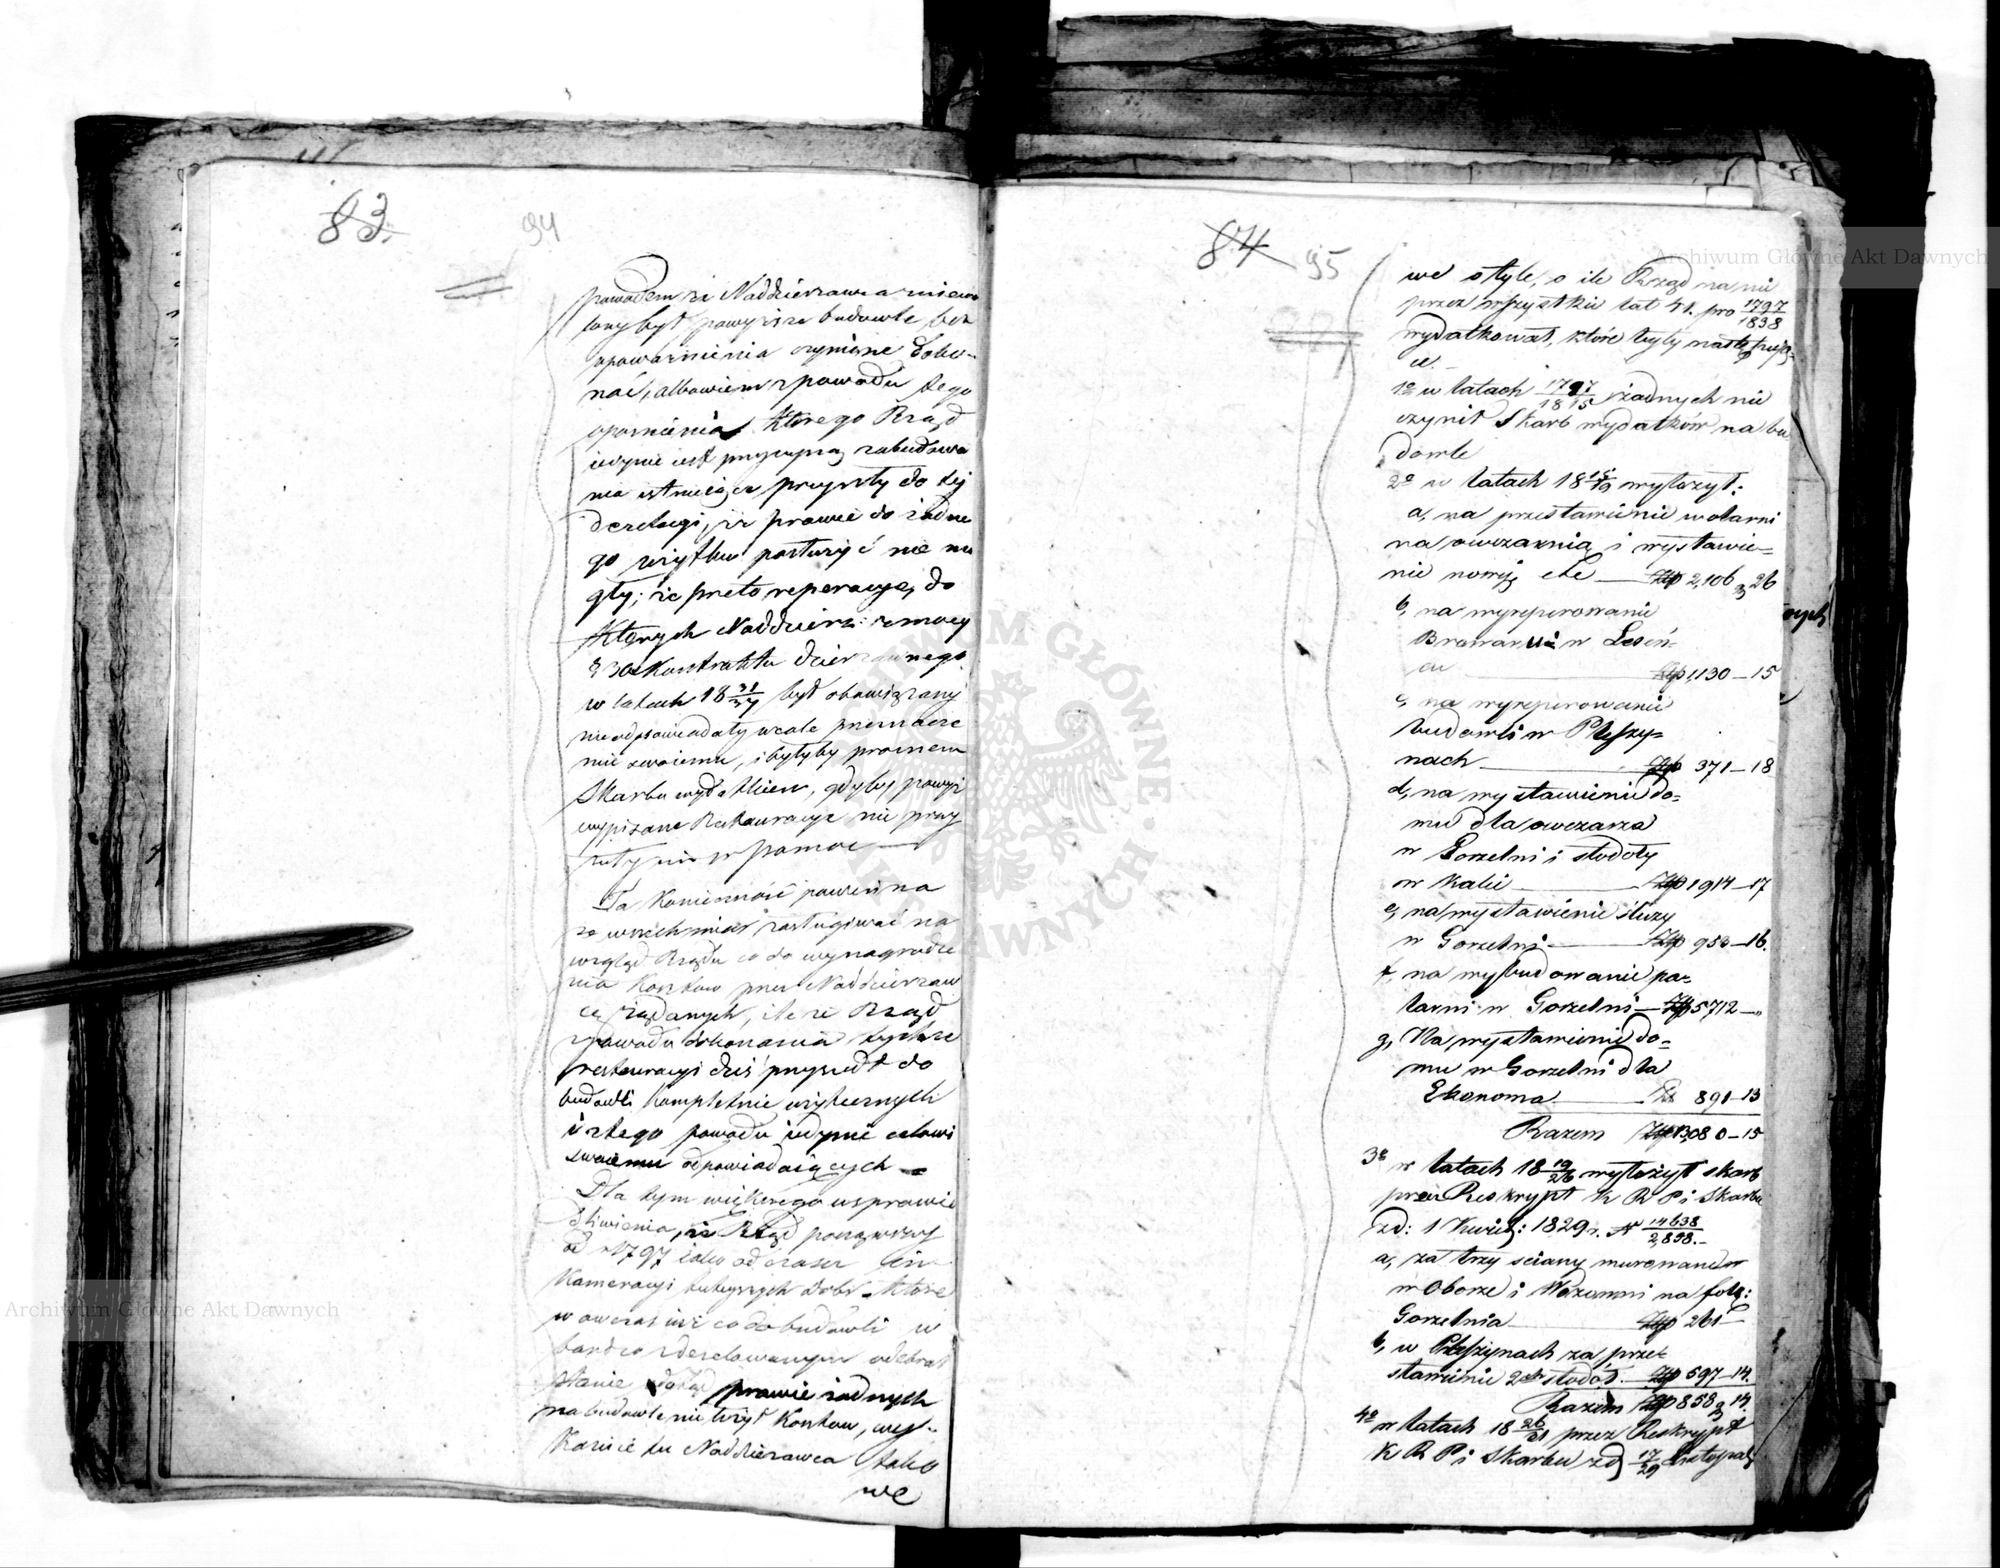 83.
94
powodem iż Naddzierzawca zniewo
lony był powyższe budowle bez
upoważnienia czynione doko-
nać, albowiem z powodu tego
opóźnienia którego Rząd
iedynie iest przyczyną zabudowa
nia istnieiące przyszły do tej
dezelacyi, iż prawie do żadne
go użytku posłużyć nie mo
gły; że przeto reperacye, do
których Naddzierz: z mocy
§ 30 Kontraktu dzierzawnego
w latach 18 31/37 był obowiązany
nieodpowiadały wcale przeznacze
niu swoiemu, i byłyby próżnem
Skarbu wydatkiem, gdyby powyż
wypisane Restauracye nie przy
szły im w pomoc
Ta Konieczność powinna
ze wszech miar zasługiwać na
wzgląd Rządu co do wynagrodze
nia Kosztów przez Naddzierzaw
cę żądanych, ile że Rząd
z powodu dokonania tychże
restauracyi dziś przyszedł do
budowli kompletnie użytecznych
i z tego powodu iedynie celowi
swoiemu odpowiadaiących
Dla tym większego usprawie
dliwienia, że Rząd począwszy
od r 1797 iako od czasu In
kameracyi tutejszych dobr które
w owczas iuż co do budowli w
bardzo zdezelowanym odebrał
stanie dotąd prawie żadnych
na budowle nie łożył Kosztów, wy-
każe tu Naddzierzawca tako
we
84
95
we o tyle, o ile Rząd na nie
przez wszystkie lat 41. pro 1797/1838
wydatkował, które były następują-
ce.
1o w latach 1797/1815 żadnych nie
czynił Skarb wydatków na bu
dowle
2o w latach 18 15/19 wyłożył:
a, na przestawienie wolarni
na owczarnią i wystawie=
nie nowej etc Złp 2,106 g 26
b, na wyreperowanie
Browaru w Leśń-
cu Złp 1,130–15
c, na wyreperowanie
budowli w Pleszy=
nach Złp 371–18
d, na wystawienie do=
mu dla owczarza
w Gorzelni i stodoły
w Kalei Złp 1914–17
e, na wystawienie śluzy
w Gorzelni Złp 953–16.
f, na wybudowanie pa=
larni w Gorzelni Złp 5712–„
g, Na wystawienie do=
mu w Gorzelni dla
Ekonoma Złp 891–13
Razem Złp 13,080–15
3o w latach 18 19/26 wyłożył skarb
przez Reskrypt K R P i Skarbu
zd: 1 Kwiet: 1829 r. N 14638/2,898.–
a, za trzy sciany murowane
w Oborze i Wozowni na folw:
Gorzelnia Złp 261
b, w Pleszynach za prze=
stawienie 2ch stodół Złp 597–14.
Razem Złp 858 g 14.
4o w latach 18 26/31 przez Reskrypt
K R P i Skarbu zd 17/29 Listopad
Archiwum Główne Akt Dawnych
Archiwum Główne Akt Dawnych
ARCHIWUM GŁÓWNE AKT DAWNYCH